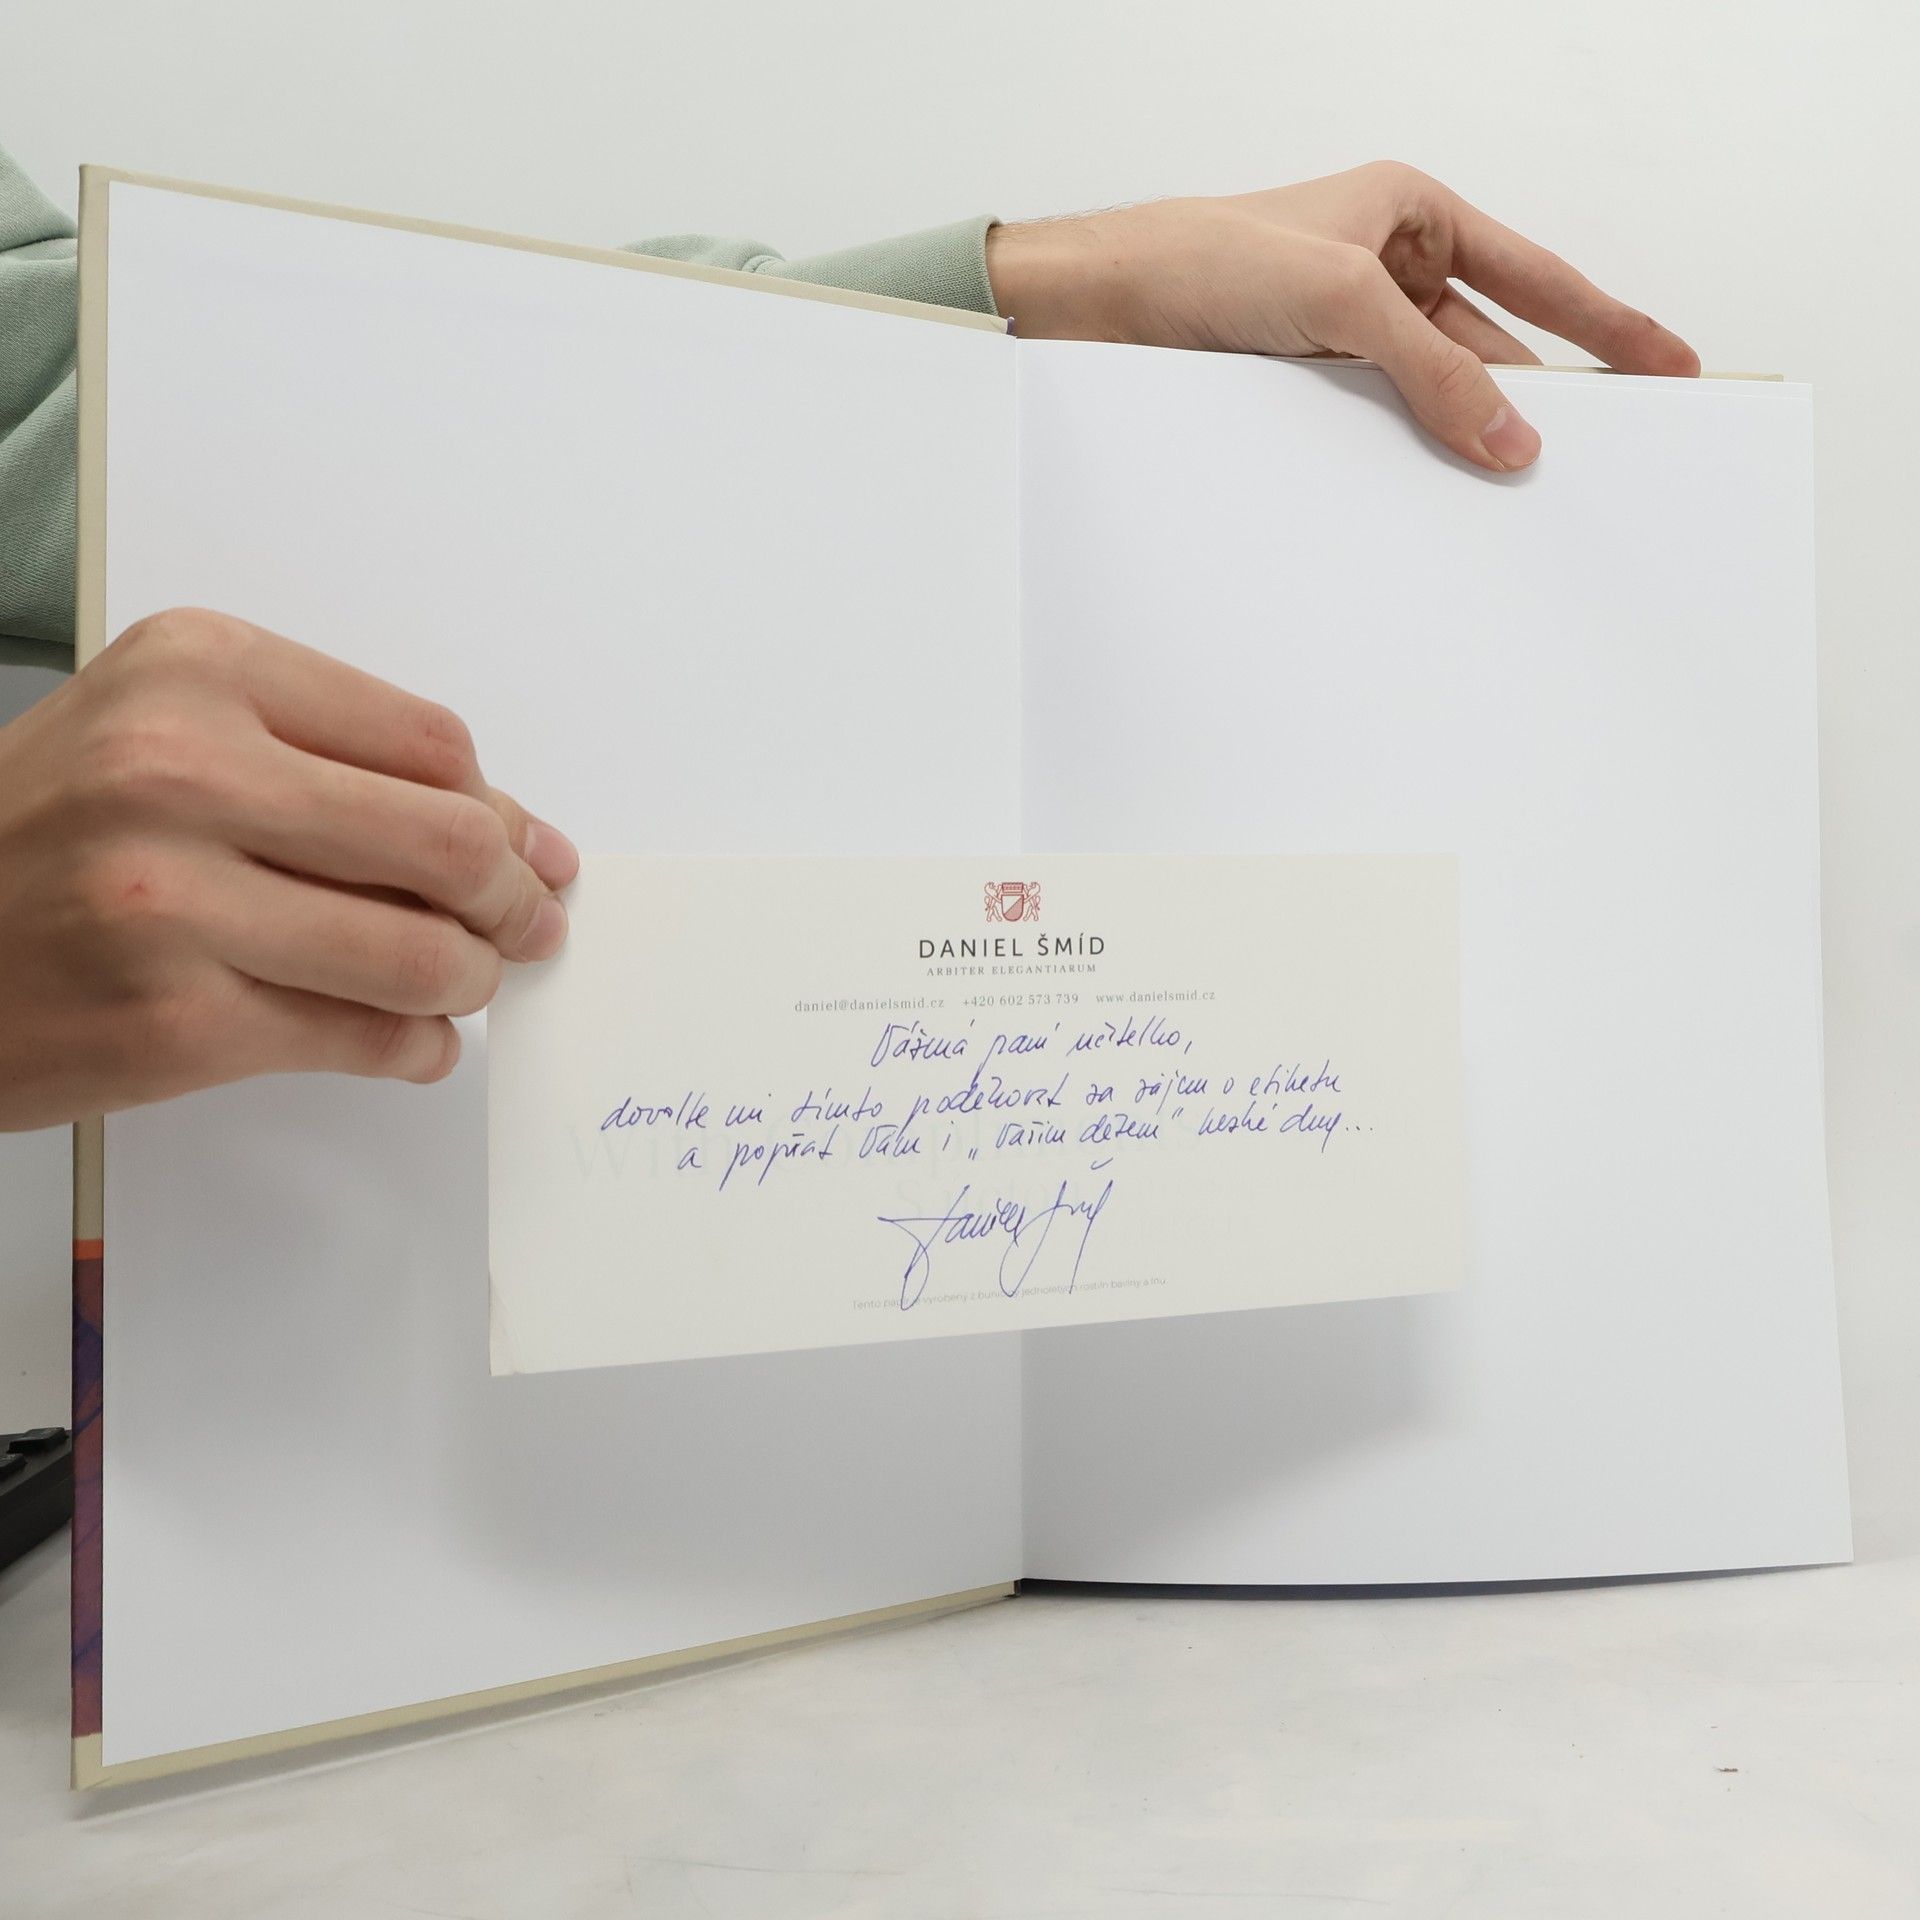 DANIEL ŠMÍD
ARBITER ELEGANTIARUM
daniel@danielsmid.cz +420 602 573 739 www.danielsmid.cz
Vážená paní učitelko,
dovolte mi tímto poděkovat za zájem o etiketu
a popřát Vám i „Vašim dětem" hezké dny...
Daniel Šmíd
Tento papír je vyrobený z buničiny jednoletých rostlin bavlny a lnu